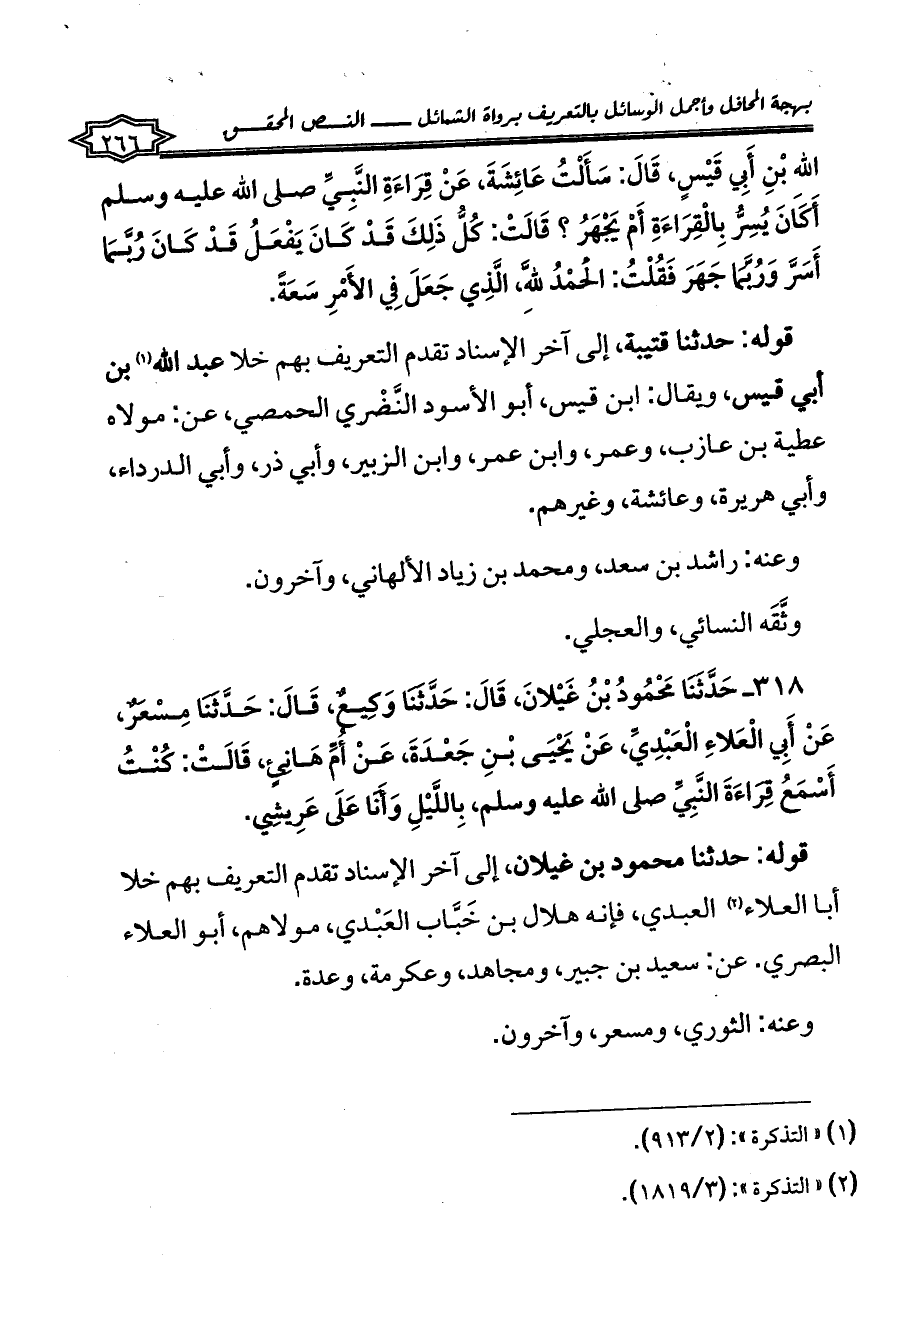 بهجة المحافل وأجمل الوسائل بالتعريف برواة الشمائل ــــ النـــص المحقـــق
٢٦٦
الله بْنِ أَبِي قَيْسٍ، قَالَ: سَأَلْتُ عَائِشَةَ، عَنْ قِرَاءَةِ النَّبِيِّ صلى الله عليه وسلم
أَكَانَ يُسِرُّ بِالْقِرَاءَةِ أَمْ يَجْهَرُ ؟ قَالَتْ: كُلُّ ذَلِكَ قَدْ كَانَ يَفْعَلُ قَدْ كَانَ رُبَّمَا
أَسَرَّ وَرُبَّمَا جَهَرَ فَقُلْتُ: الْحَمْدُ للهِ، الَّذِي جَعَلَ فِي الأَمْرِ سَعَةً.
قوله: حدثنا قتيبة، إلى آخر الإسناد تقدم التعريف بهم خلا عبد الله(١) بن
أبي قيس، ويقال: ابن قيس، أبو الأسود النَّصْري الحمصي، عن: مولاه
عطية بن عازب، وعمر، وابن عمر، وابن الزبير، وأبي ذر، وأبي الدرداء،
وأبي هريرة، وعائشة، وغيرهم.
وعنه: راشد بن سعد، ومحمد بن زياد الألهاني، وآخرون.
وثَّقَه النسائي، والعجلي.
٣١٨ـ حَدَّثَنَا مَحْمُودُ بْنُ غَيْلانَ، قَالَ: حَدَّثَنَا وَكِيعٌ، قَالَ: حَدَّثَنَا مِسْعَرٌ،
عَنْ أَبِي الْعَلاءِ الْعَبْدِيِّ، عَنْ يَحْيَى بْنِ جَعْدَةَ، عَنْ أُمِّ هَانِئٍ، قَالَتْ: كُنْتُ
أَسْمَعُ قِرَاءَةَ النَّبِيِّ صلى الله عليه وسلم، بِاللَّيْلِ وَأَنَا عَلَى عَرِيشِي.
قوله: حدثنا محمود بن غيلان، إلى آخر الإسناد تقدم التعريف بهم خلا
أبا العلاء(٢) العبدي، فإنه هلال بن خَبَّاب العَبْدي، مولاهم، أبو العلاء
البصري. عن: سعيد بن جبير، ومجاهد، وعكرمة، وعدة.
وعنه: الثوري، ومسعر، وآخرون.
(١) «التذكرة»: (٩١٣/٢).
(٢) «التذكرة»: (١٨١٩/٣).